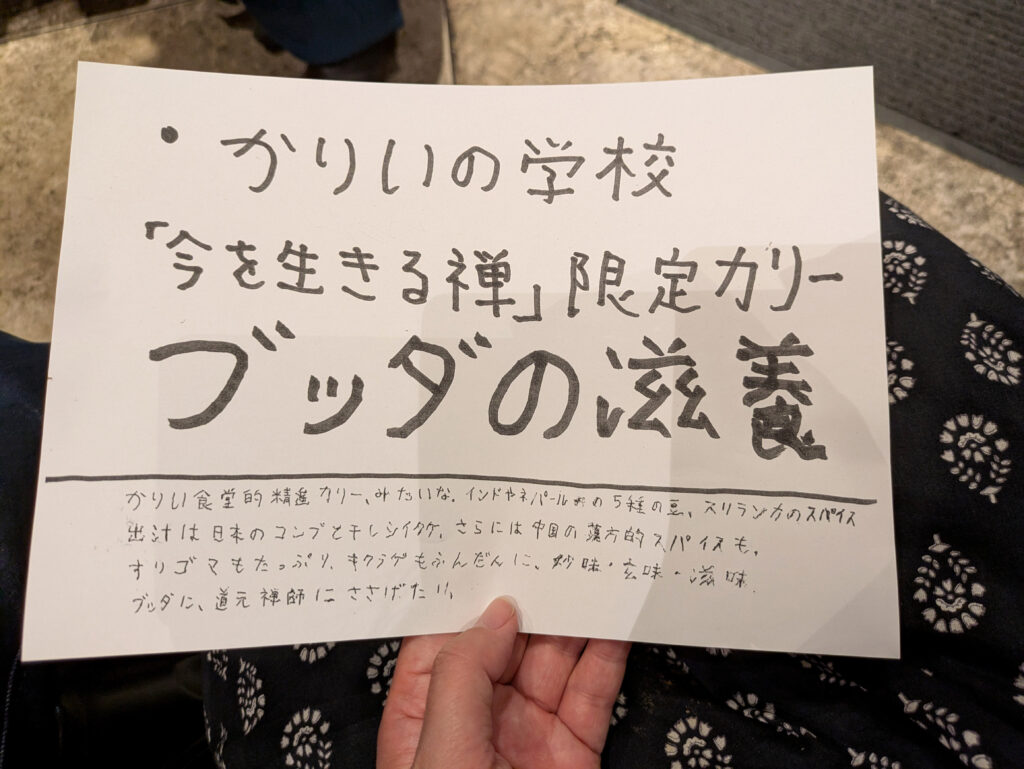 ・かりいの学校
「今を生きる禅」限定カリー
ブッダの滋養
かりい食堂的精進カリー、みたいな。インドやネパールの5種の豆、スリランカのスパイス
出汁は日本のコンブと干しシイタケ。さらには中国の漢方的スパイスも。
すりゴマもたっぷり、キクラゲもふんだんに、妙味・玄味・滋味
ブッダに、道元禅師にささげたい。